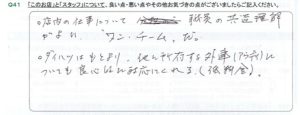 Q41 「このお店」と「スタッフ」について、良い点・悪い点やその他お気づきの点がございましたらご記入ください。
○店内の仕事について 職員の共通理解
がよく、"ワン・チーム"だ。
○ダイハツはもとより、他に付する外車(アウディ)に
ついても良心的な対応してくれる。(低料金)。